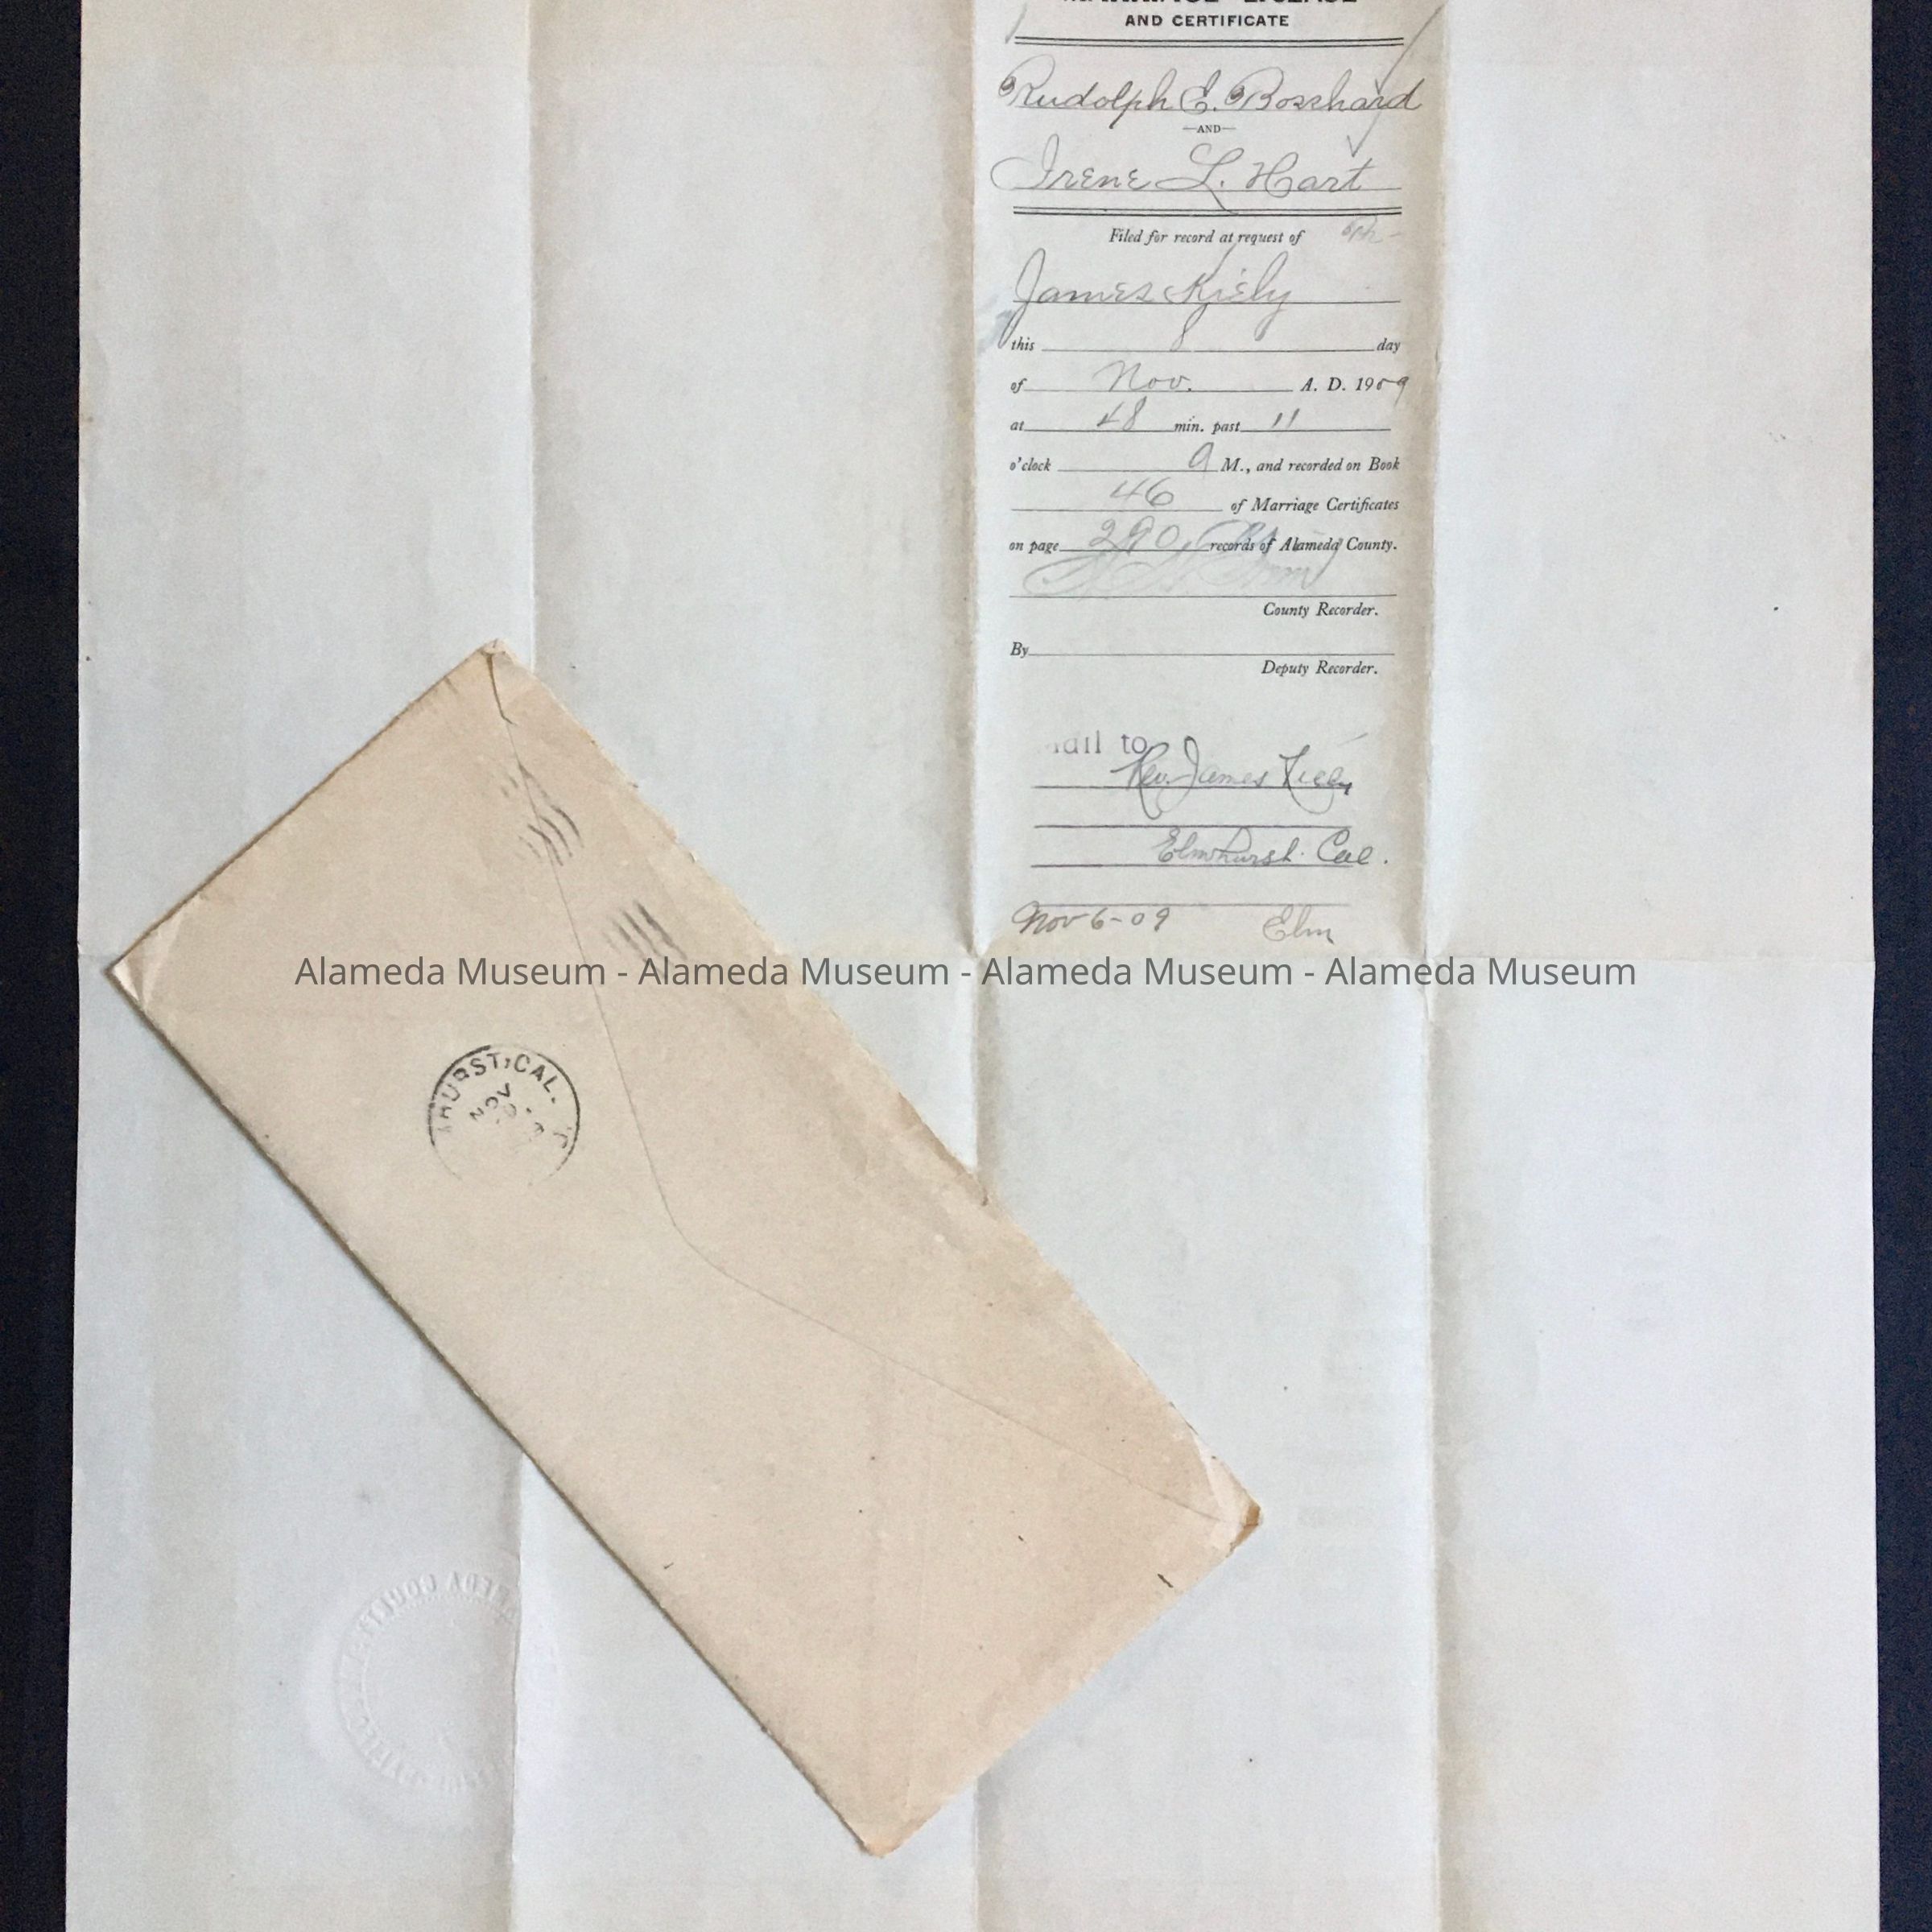 AND CERTIFICATE
Rudolph E. Bosshard
—AND—
Irene L. Hart
Filed for record at request of
James Kiely
this 8 day
of Nov. A. D. 1909
at 48 min. past 11
o'clock a M., and recorded on Book
46 of Marriage Certificates
on page 290, records of Alameda County.
County Recorder.
By
Deputy Recorder.
to
Rev. James Kiely
Elmhurst Cal.
Nov 6-09 Elm
Alameda Museum - Alameda Museum - Alameda Museum - Alameda Museum
HURST, CAL.
NOV